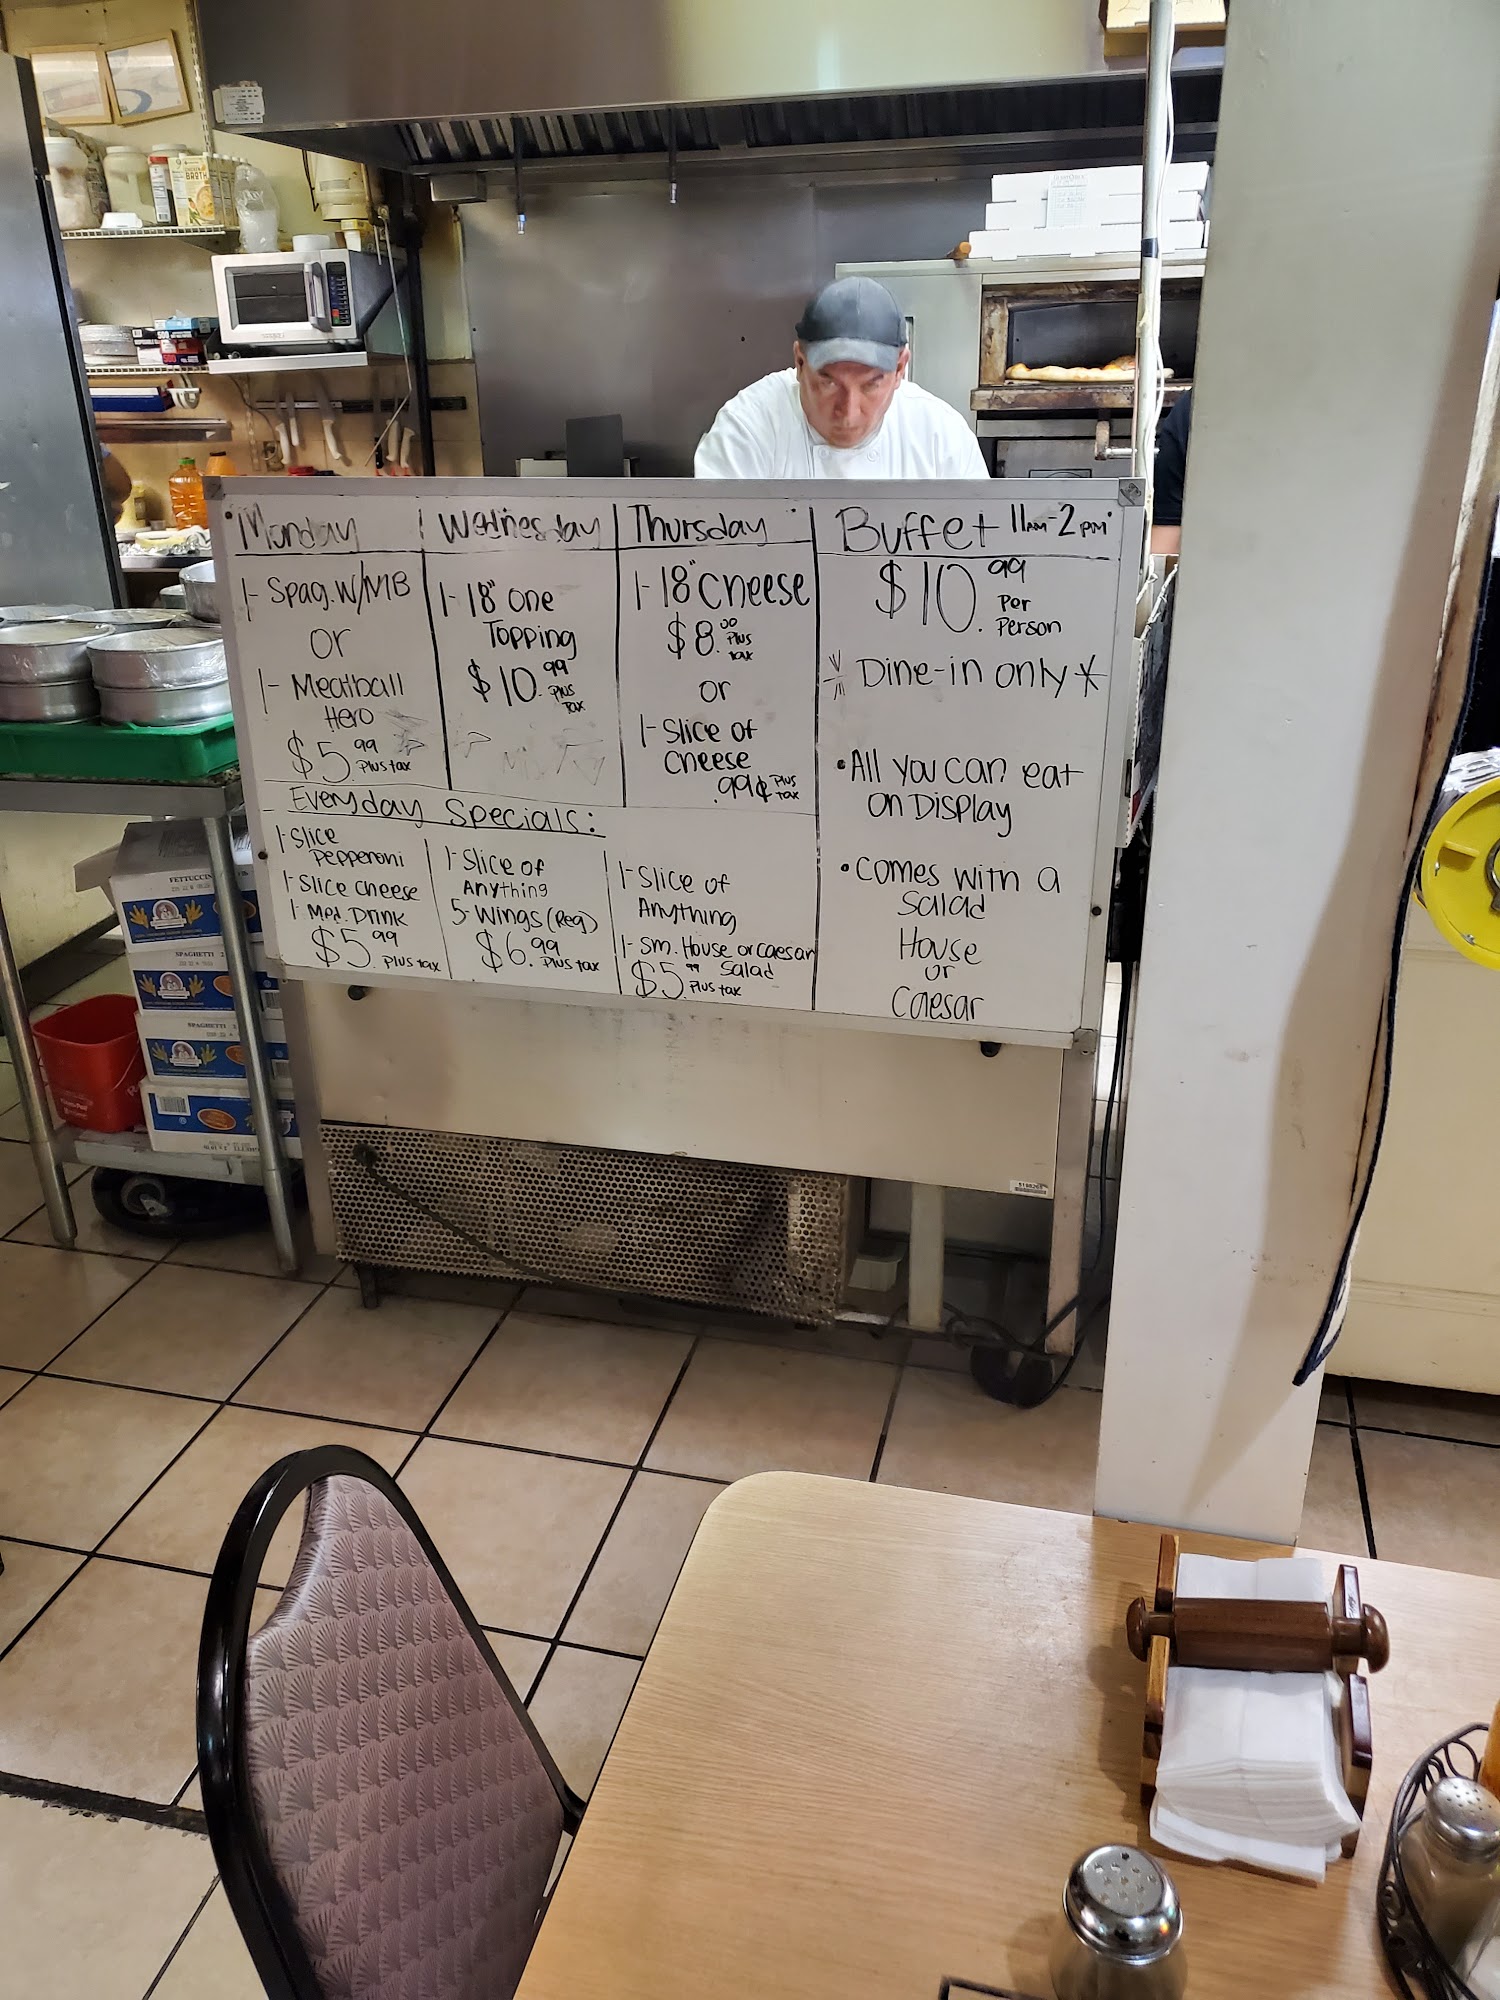 BROTH
Monday
1- Spag. W/MB
or
1- Meatball
Hero
$5.99 Plus tax
Wednesday
1- 18" One
Topping
$10.99 Plus Tax
Thursday
1- 18" Cheese
$8.00 Plus tax
or
1- Slice of
Cheese
.99¢ Plus tax
Buffet 11AM-2PM
$10.99 Per Person
* Dine-in only *
• All you can eat
on Display
• Comes with a
Salad
House
or
Caesar
Everyday Specials:
1- Slice
Pepperoni
1- Slice cheese
1 Med. Drink
$5.99 Plus tax
1- Slice of
Anything
5- Wings (Reg)
$6.99 Plus tax
1- Slice of
Anything
1- Sm. House or Caesar
Salad
$5.99 Plus tax
FETTUCCIN
SPAGHETTI 2
SPAGHETTI 2